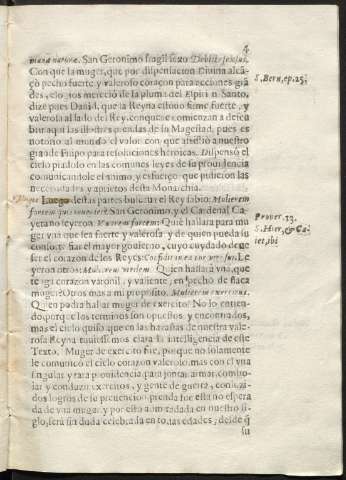 4
mana natura. San Geronimo fragil sexo Debilis sexus.
Con que la muger, que por dispensacion Diuina alcã-
çò pecho fuerte, y valeroso coraçon para acciones grã
des, elogios mereciò de la pluma del Espiritu Santo,
dize pues Dauid, que la Reyna estuuo firme fuerte, y
valerosa al lado del Rey, con que comiençan a descu
brir aqui las ilustres prendas de su Magestad, pues es
notorio al mundo el valor con que assistiò a nuestro
grã de Filipo para resoluciones heroicas. Dispensò el
cielo piadoso en las comunes leyes de su prouidencia
comunicandole el animo, y esfuerço, que pidieron las
necessidades y aprietos desta Monarchia.
Luego destas partes buscaua el Rey sabio: Mulierem
fortem quis inueniet? San Geronimo, y el Cardenal Ca
yetano leyeron Viuorem fortem: Quiē hallarà para mu
ger vna que sea fuerte y valerosa, y de quien pueda su
consorte fiar el mayor gouierno, cuyo cuydado deue
ser el coraçon de los Reyes: Confidit in ea cor viri sui. Le
yeron otros: Mulierem virilem. Quien hallarà vna, que
tenga coraçon varonil, y valiente, en pecho de flaca
muger? Otros mas a mi proposito, Mulierem exercitus.
Quien podra hallar muger de exercito? No lo entien
do, porque los terminos son opuestos, y encontrados,
mas el cielo quiso que en las hazañas de nuestra vale-
rosa Reyna tuuiessemos clara la inteligencia de este
Texto. Muger de exercito fue, porque no solamente
le comunicò el cielo coraçon valeroso, mas con el vna
singular y rara prouidencia para juntar, armar, combo-
iar y conduzir exercitos, y gente de guerra, con luza-
dos logros de su preuencion, prenda fue esta no espera
da de vna muger, y por esto admirada en nuestro si-
glo, serà sin duda celebrada en todas edades, desde q̃
su
S. Bern, ep. 25.
Prouer. 33.
S. Hier, & Ca
iet, ibi